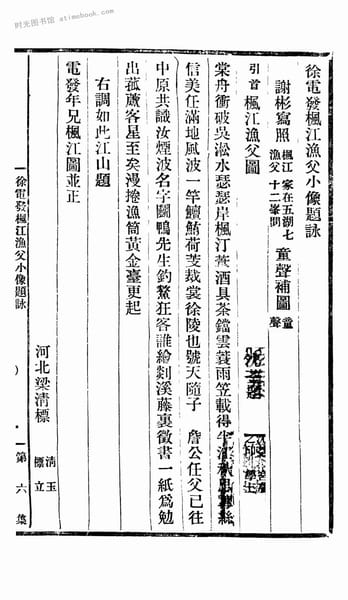 徐電發楓江漁父小像題詠
謝彬寫照 楓江漁父 家在五湖七十二峯間 童聲補圖 童聲
引首 楓江漁父圖
棠舟衝破吳淞水瑟瑟岸楓汀荻酒具茶鐺雲蓑雨笠載得半
信美任滿地風波一竿鱣鮪荷芰裁裳徐陵也號天隨子 詹公任父已往
中原共識汝煙波名字鬭鴨先生釣鰲狂客誰繪剡溪藤裏徵書一紙爲勉
出菰蘆客星至矣漫捲漁筒黃金臺更起
右調如此江山題
電發年兄楓江圖並正
河北梁清標 清標 玉立
徐電發楓江漁父小像題詠
一第六集
时光图书馆 atimebook.com